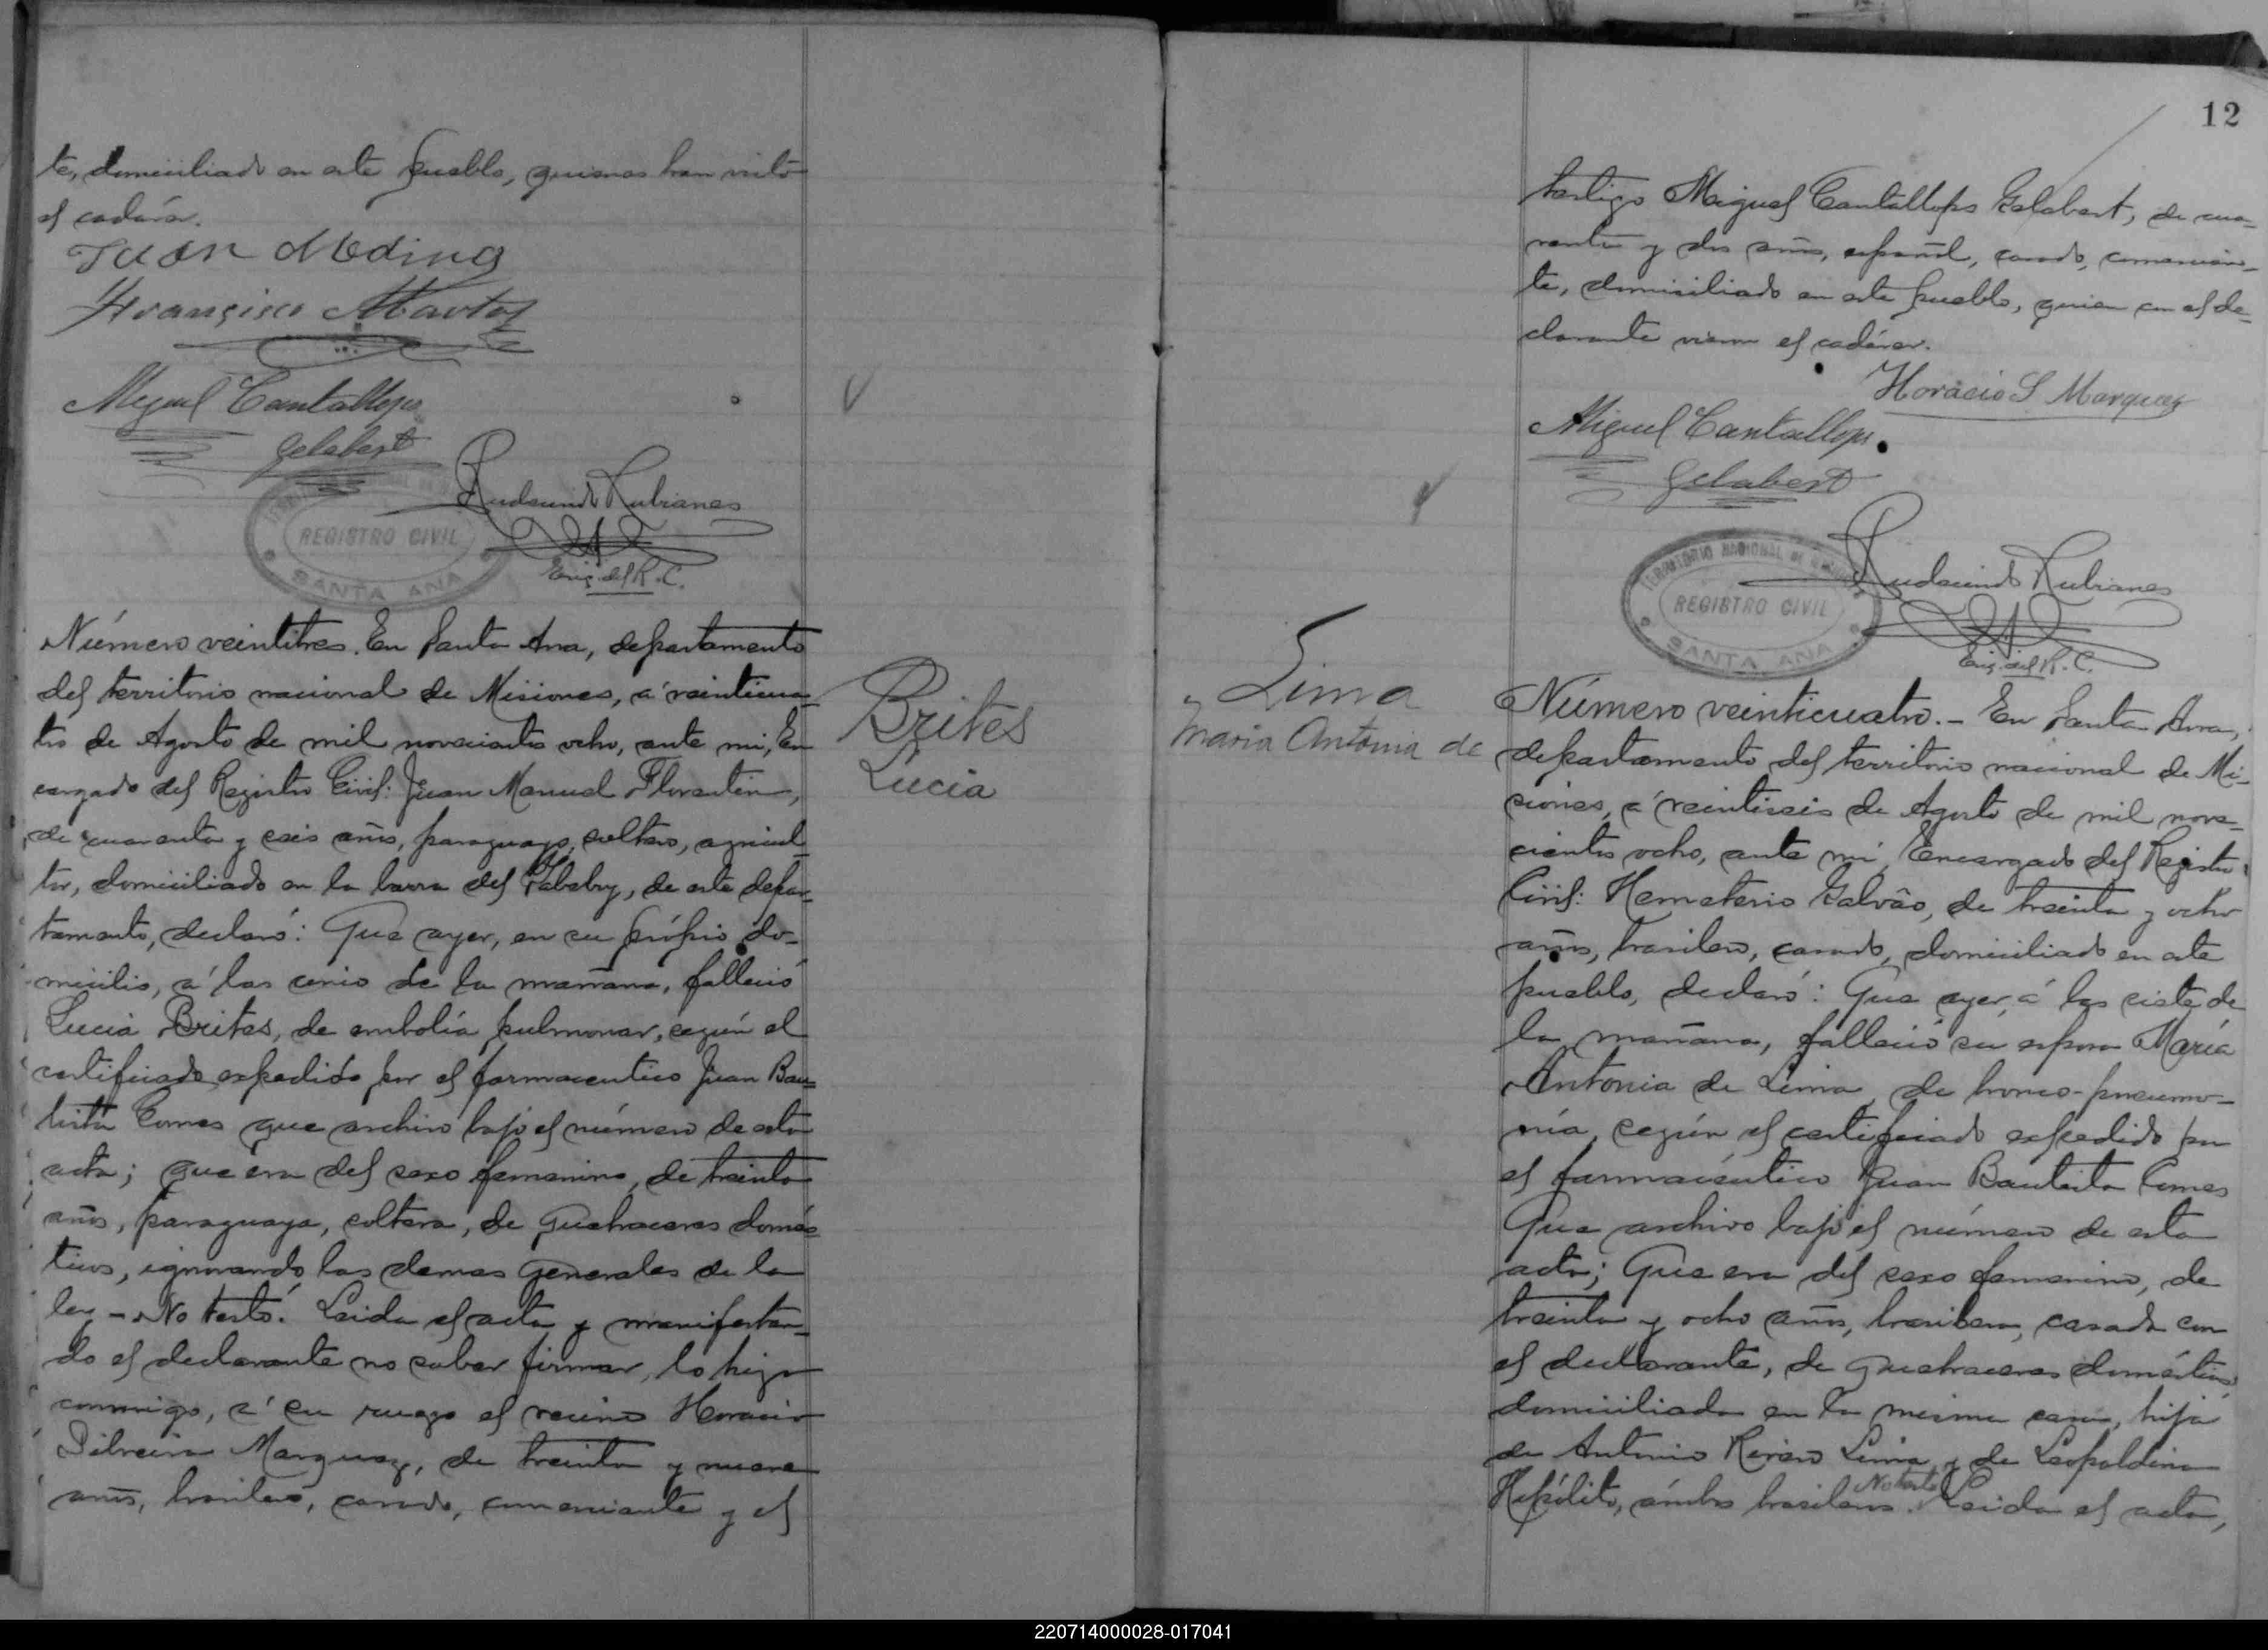 te, domiciliado en este pueblo, quienes han visto
el cadáver.
Juan Medina
Francisco Martos
Miguel Cantallops
Gelabert
Rudecindo Rubianes
Enc. del R. C.
REGISTRO CIVIL
SANTA ANA
Número veintitres. En Santa Ana, departamento
del territorio nacional de Misiones, a´ veinticua-
tro de Agosto de mil novecientos ocho, ante mi, En
cargado del Registro Civil: Juan Manuel Florentin,
de cuarenta y seis años, paraguayo, soltero, agricul-
tor, domiciliado en la barra del Yabebry, de este depar-
tamento, declaró: Que ayer, en su própio do-
micilio, a´ las cinco de la mañana, falleció
Lucia Brites, de embolía pulmonar, según el
certificado expedido por el farmaceutico Juan Bau-
tista Comes que archivo bajo el número de esta
acta; que era del sexo femenino, de treinta
años, paraguaya, soltera, de quehaceres domés-
ticos, ignorando las demas generales de la
ley - No testó. Leida el acta y manifestan-
do el declarante no saber firmar, lo hizo
conmigo, a´ su ruego el vecino Horacio
Silveira Marquez, de treinta y nueve
años, brasilero, casado, comerciante y el
Brites
Lucia
12
testigo Miguel Cantallops Gelabert, de cua-
renta y dos años, español, casado, comercian-
te, domiciliado en este pueblo, quien con el de-
clarante vieron el cadáver.
Horacio S Marquez
Miguel Cantallops
Gelabert
Rudecindo Rubianes
Enc. del R. C.
TERRITORIO NACIONAL DE
REGISTRO CIVIL
SANTA ANA
Lima
Maria Antonia de
Número veinticuatro. - En Santa Ana,
departamento del territorio nacional de Mi-
siones, a´ veintiseis de Agosto de mil nove-
cientos ocho, ante mi, Encargado del Registro
Civil: Hemeterio Galvão, de treinta y ocho
años, brasilero, casado, domiciliado en este
pueblo, declaró: Que ayer, a´ las siete de
la mañana, falleció su esposa María
Antonia de Lima, de bronco-pneumo-
nía, según el certificado expedido por
el farmacéutico Juan Bautista Comes
Que archivo bajo el número de esta
acta; Que era del sexo femenino, de
treinta y ocho años, brasilera, casada con
el declarante, de quehaceres domésticos
domiciliada en la misma casa, hija
de Antonio Lima y de Leopoldina
Hipólito, ámbos brasileros. No testó Leida el acta,
220714000028-017041